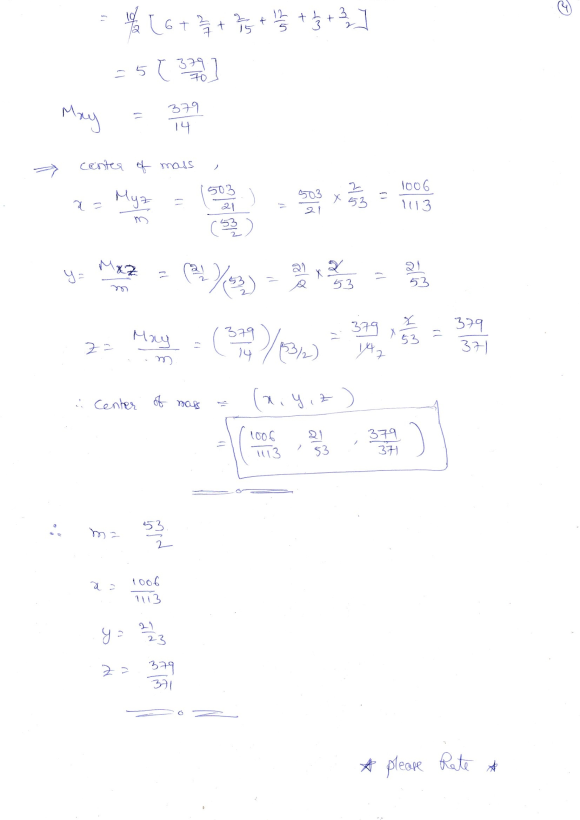 (4)
= 10/2 [ 6 + 2/7 + 2/15 + 12/5 + 1/3 + 3/2 ]
= 5 [ 379/70 ]
Mxy = 379/14
⇒ center of mass ,
x = Myz/m = (503/21)/(53/2) = 503/21 × 2/53 = 1006/1113
y = Mxz/m = (21/2)/(53/2) = 21/2 × 2/53 = 21/53
z = Mxy/m = (379/14)/(53/2) = 379/14 2 × 2/53 = 379/371
∴ center of mass = (x, y, z)
= (1006/1113 , 21/53 , 379/371)
∴ m = 53/2
x = 1006/1113
y = 21/23
z = 379/371
* please Rate *